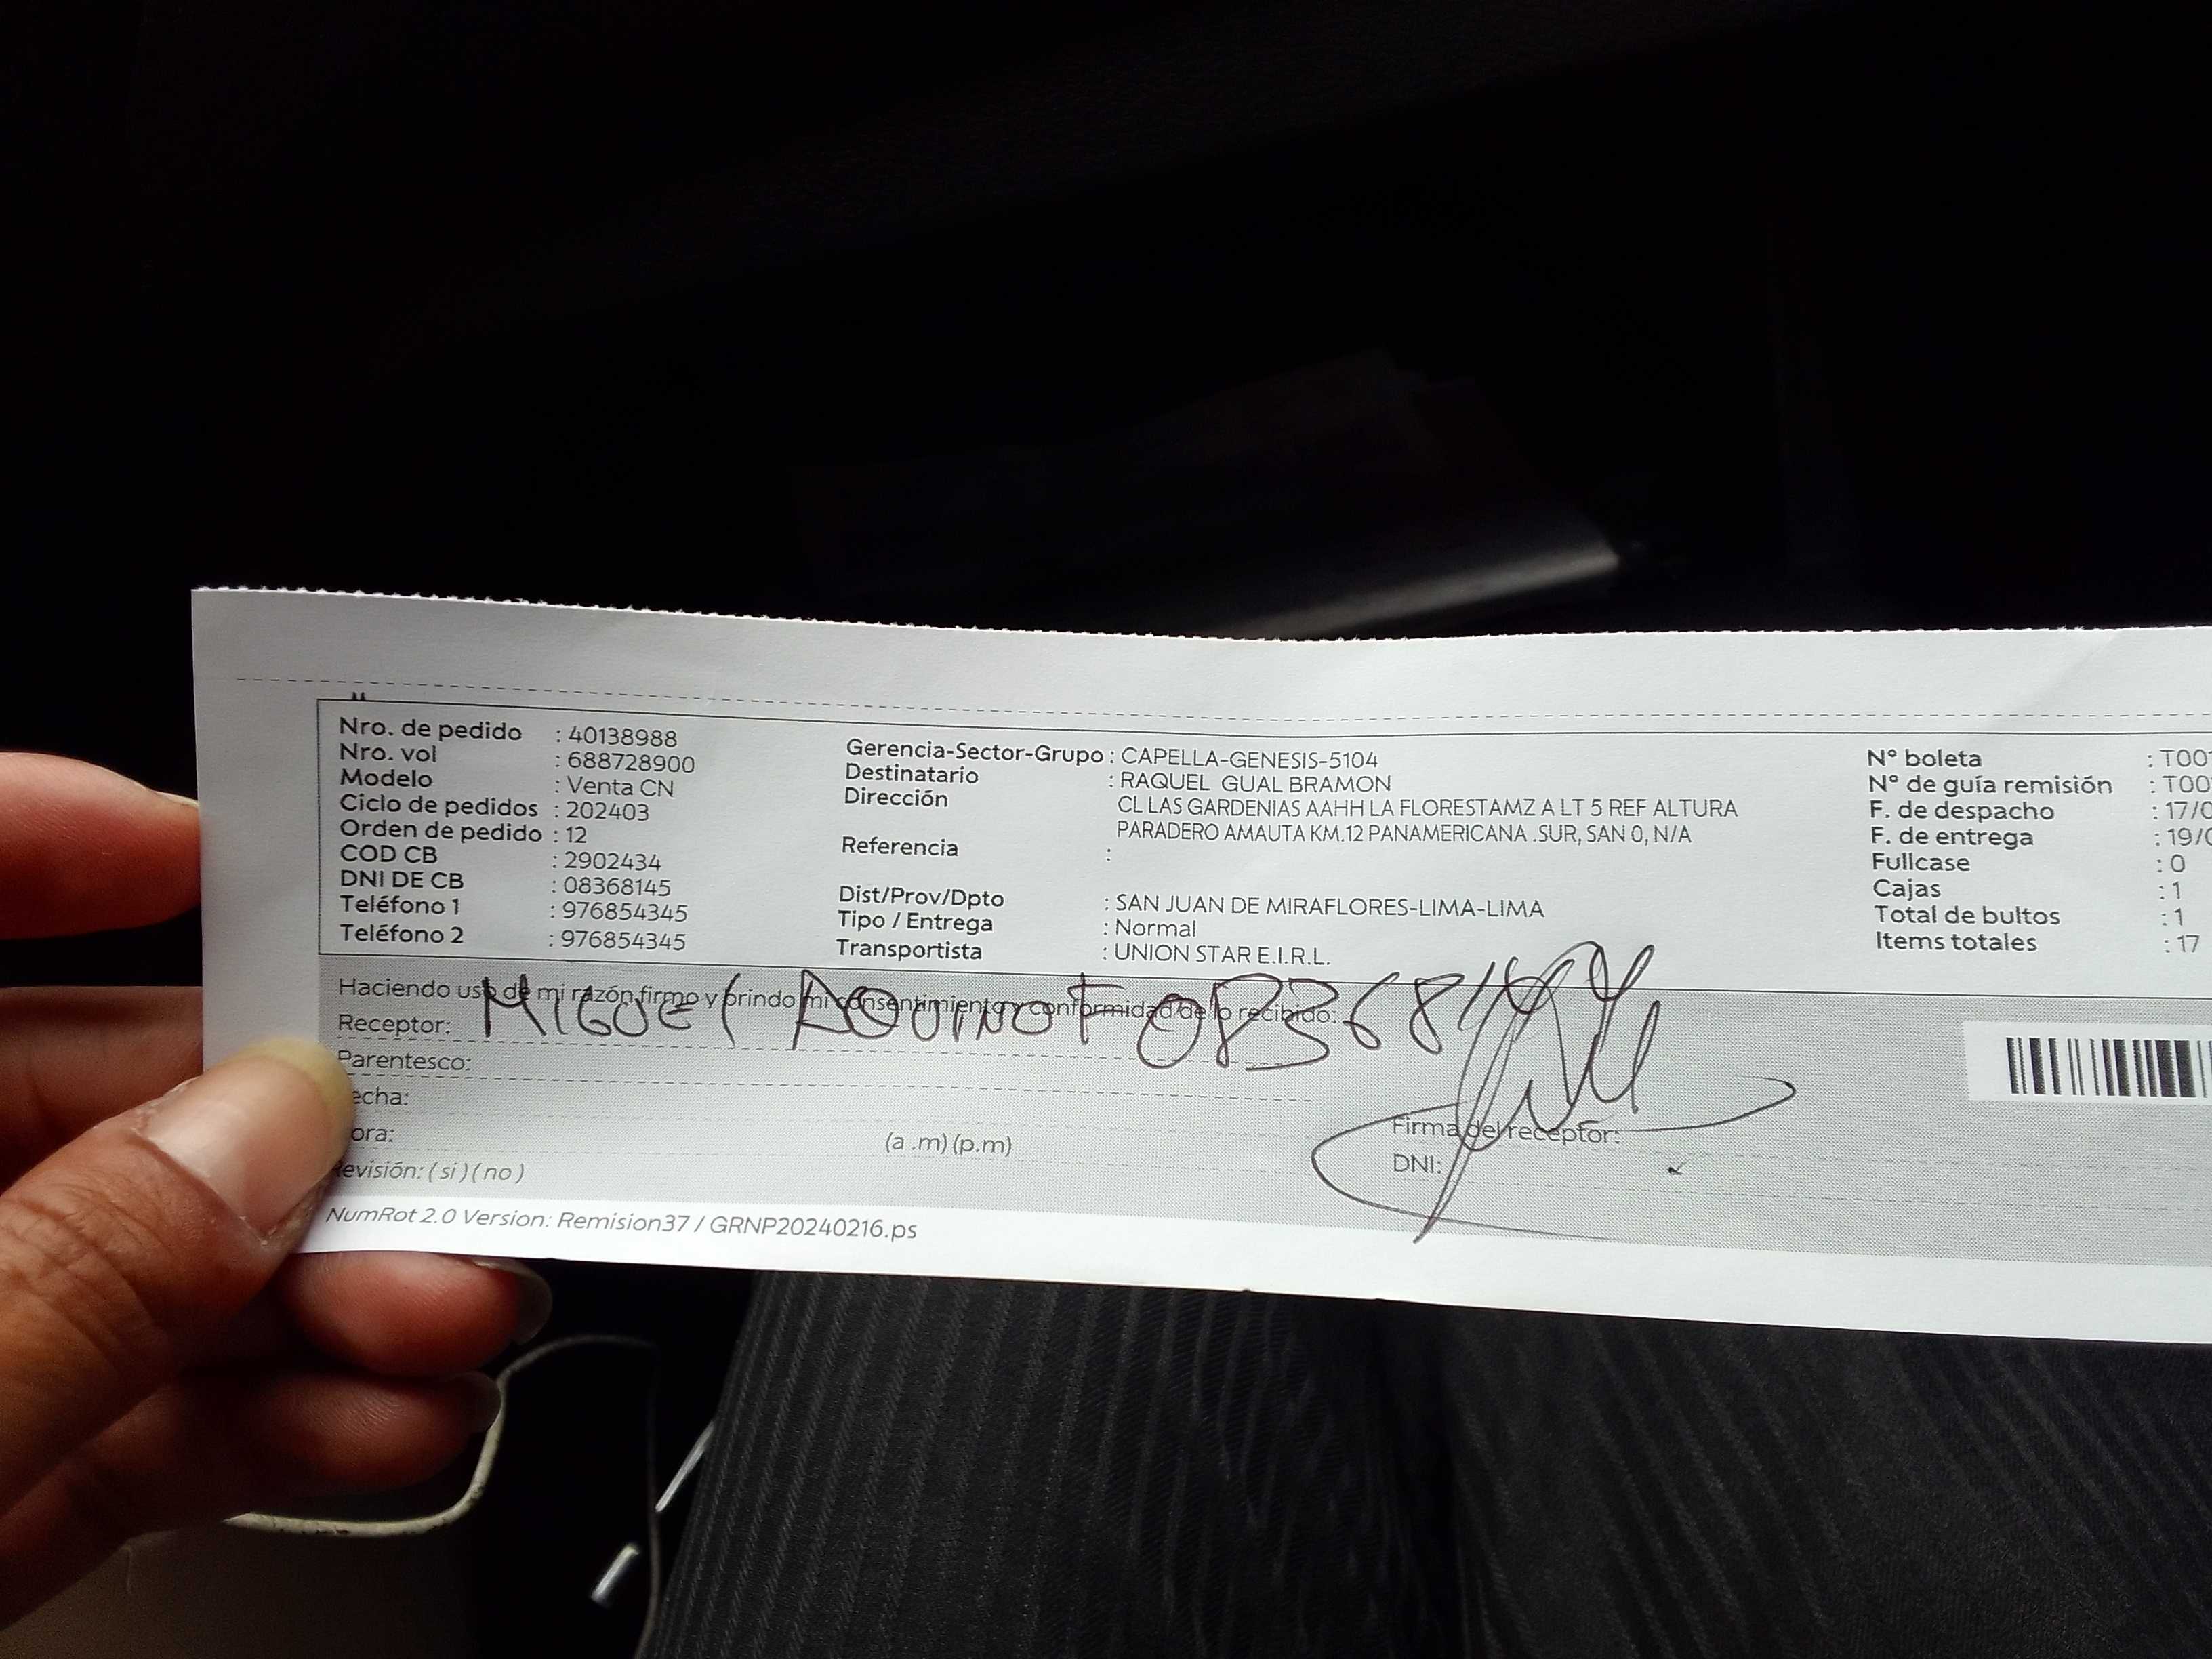 Nro. de pedido : 40138988
Nro. vol : 688728900
Modelo : Venta CN
Ciclo de pedidos : 202403
Orden de pedido : 12
COD CB : 2902434
DNI DE CB : 08368145
Teléfono 1 : 976854345
Teléfono 2 : 976854345
Gerencia-Sector-Grupo : CAPELLA-GENESIS-5104
Destinatario : RAQUEL GUAL BRAMON
Dirección CL LAS GARDENIAS AAHH LA FLORESTAMZ A LT 5 REF ALTURA
PARADERO AMAUTA KM.12 PANAMERICANA .SUR, SAN 0, N/A
Referencia :
Dist/Prov/Dpto : SAN JUAN DE MIRAFLORES-LIMA-LIMA
Tipo / Entrega : Normal
Transportista : UNION STAR E.I.R.L.
N° boleta : T00
N° de guía remisión : T00
F. de despacho : 17/0
F. de entrega : 19/0
Fullcase : 0
Cajas : 1
Total de bultos : 1
Items totales : 17
Haciendo uso de mi razón firmo y brindo mi consentimiento y conformidad de lo recibido:
Receptor: MIGUEl AQUINO T
Parentesco:
echa:
ora:
(a .m) (p.m)
evisión: ( si ) ( no )
Firma del receptor:
DNI:
NumRot 2.0 Version: Remision37 / GRNP20240216.ps